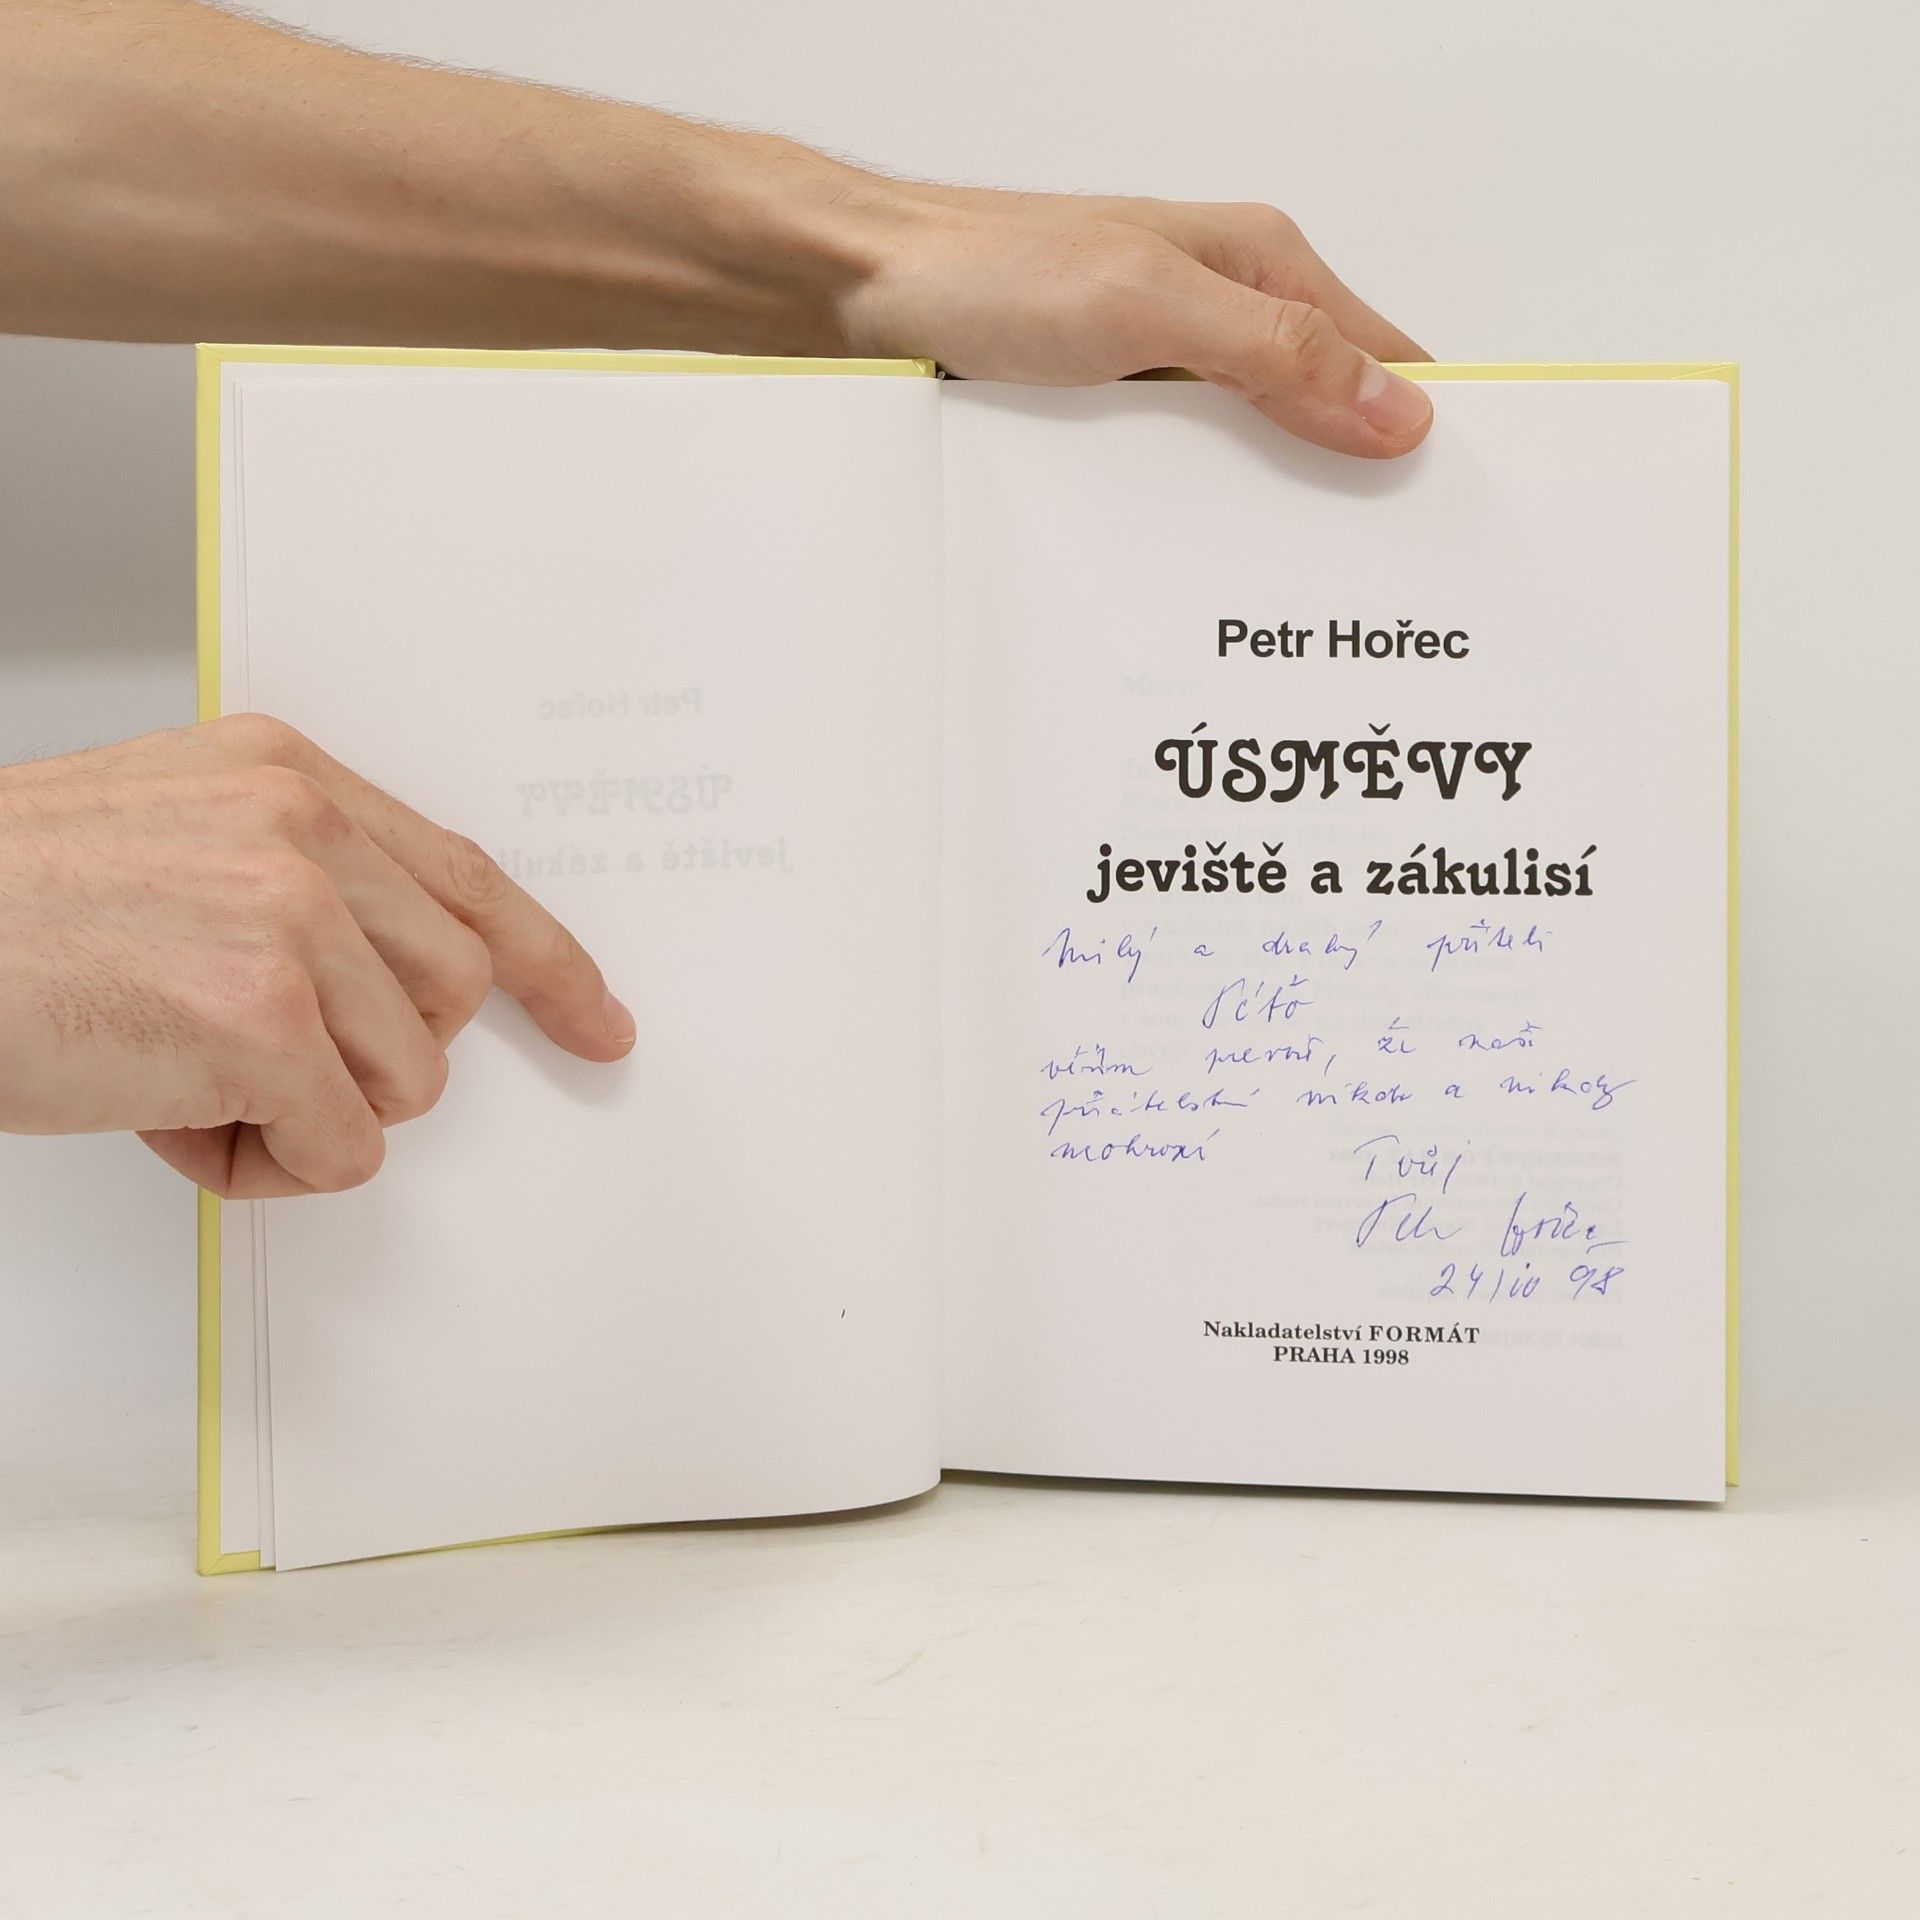 Petr Hořec
ÚSMĚVY
jeviště a zákulisí
Milý a drahý příteli
Péťo
věřím pevně, že naše
přátelství nikdo a nikdy
neohrozí
Tvůj
Petr Hořec
24/IV 98
Nakladatelství FORMÁT
PRAHA 1998